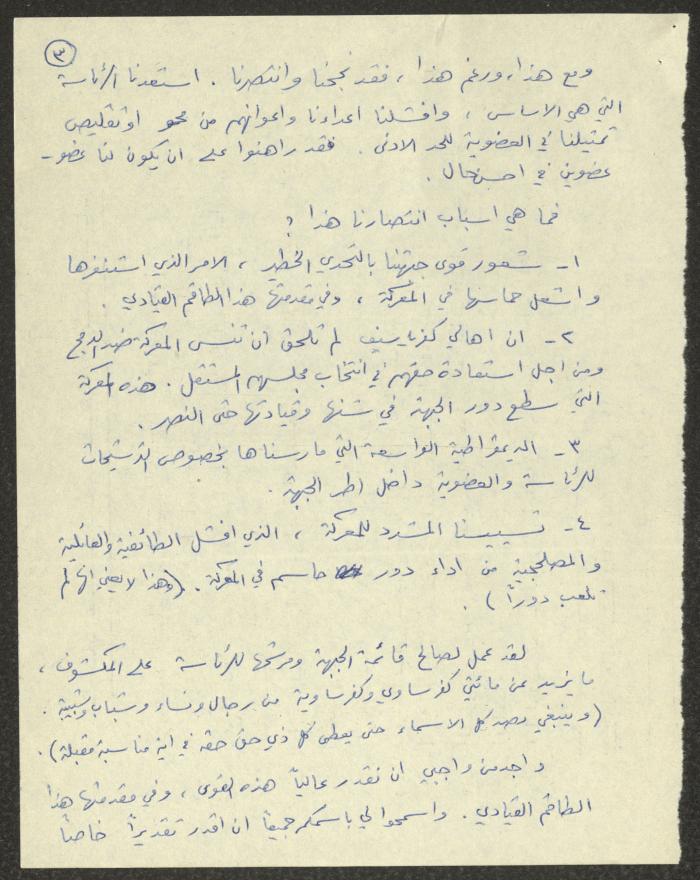 ٣
ومع هذا، ورغم هذا، فقد نجحنا وانتصرنا. استعدنا الرئاسة
التي هي الاساس، وافشلنا اعداءنا واعوانهم من محو او تقليص
تمثيلنا في العضوية للحد الادنى. فقد راهنوا على ان يكون لنا عضو -
عضوين في احسن حال.
فما هي اسباب انتصارنا هذا؟
١- شعور قوى جبهتنا بالتحدي الخطير، الامر الذي استنفرها
واشعل حماسها في المعركة، وفي مقدمتها هذا الطاقم القيادي.
٢- ان اهالي كفرياسيف لم تلحق ان تنسى المعركة ضد الدمج
ومن اجل استعادة حقهم في انتخاب مجلسهم المستقل. هذه المعركة
التي سطع دور الجبهة في شنها وقيادتها حتى النصر.
٣- الديمقراطية الواسعة التي مارسناها بخصوص الترشيحات
للرئاسة والعضوية داخل اطر الجبهة.
٤- تسييسنا المشدد للمعركة، الذي افشل الطائفية والعائلية
والمصلحجية من اداء دور حاسم في المعركة. (وهذا لا يعني انها لم
تلعب دوراً).
لقد عمل لصالح قائمة الجبهة ومرشحها للرئاسة على المكشوف،
ما يزيد عن مائتي كفرساوي وكفرساوية من رجال ونساء وشباب وشبيبة.
(وينبغي رصد كل الاسماء حتى يعطى كل ذي حق حقه في اية مناسبة مقبلة).
واجد من واجبي ان نقدر عالياً هذه القوى، وفي مقدمتها هذا
الطاقم القيادي. واسمحوا لي باسمكم جميعاً ان اقدر تقديراً خاصاً